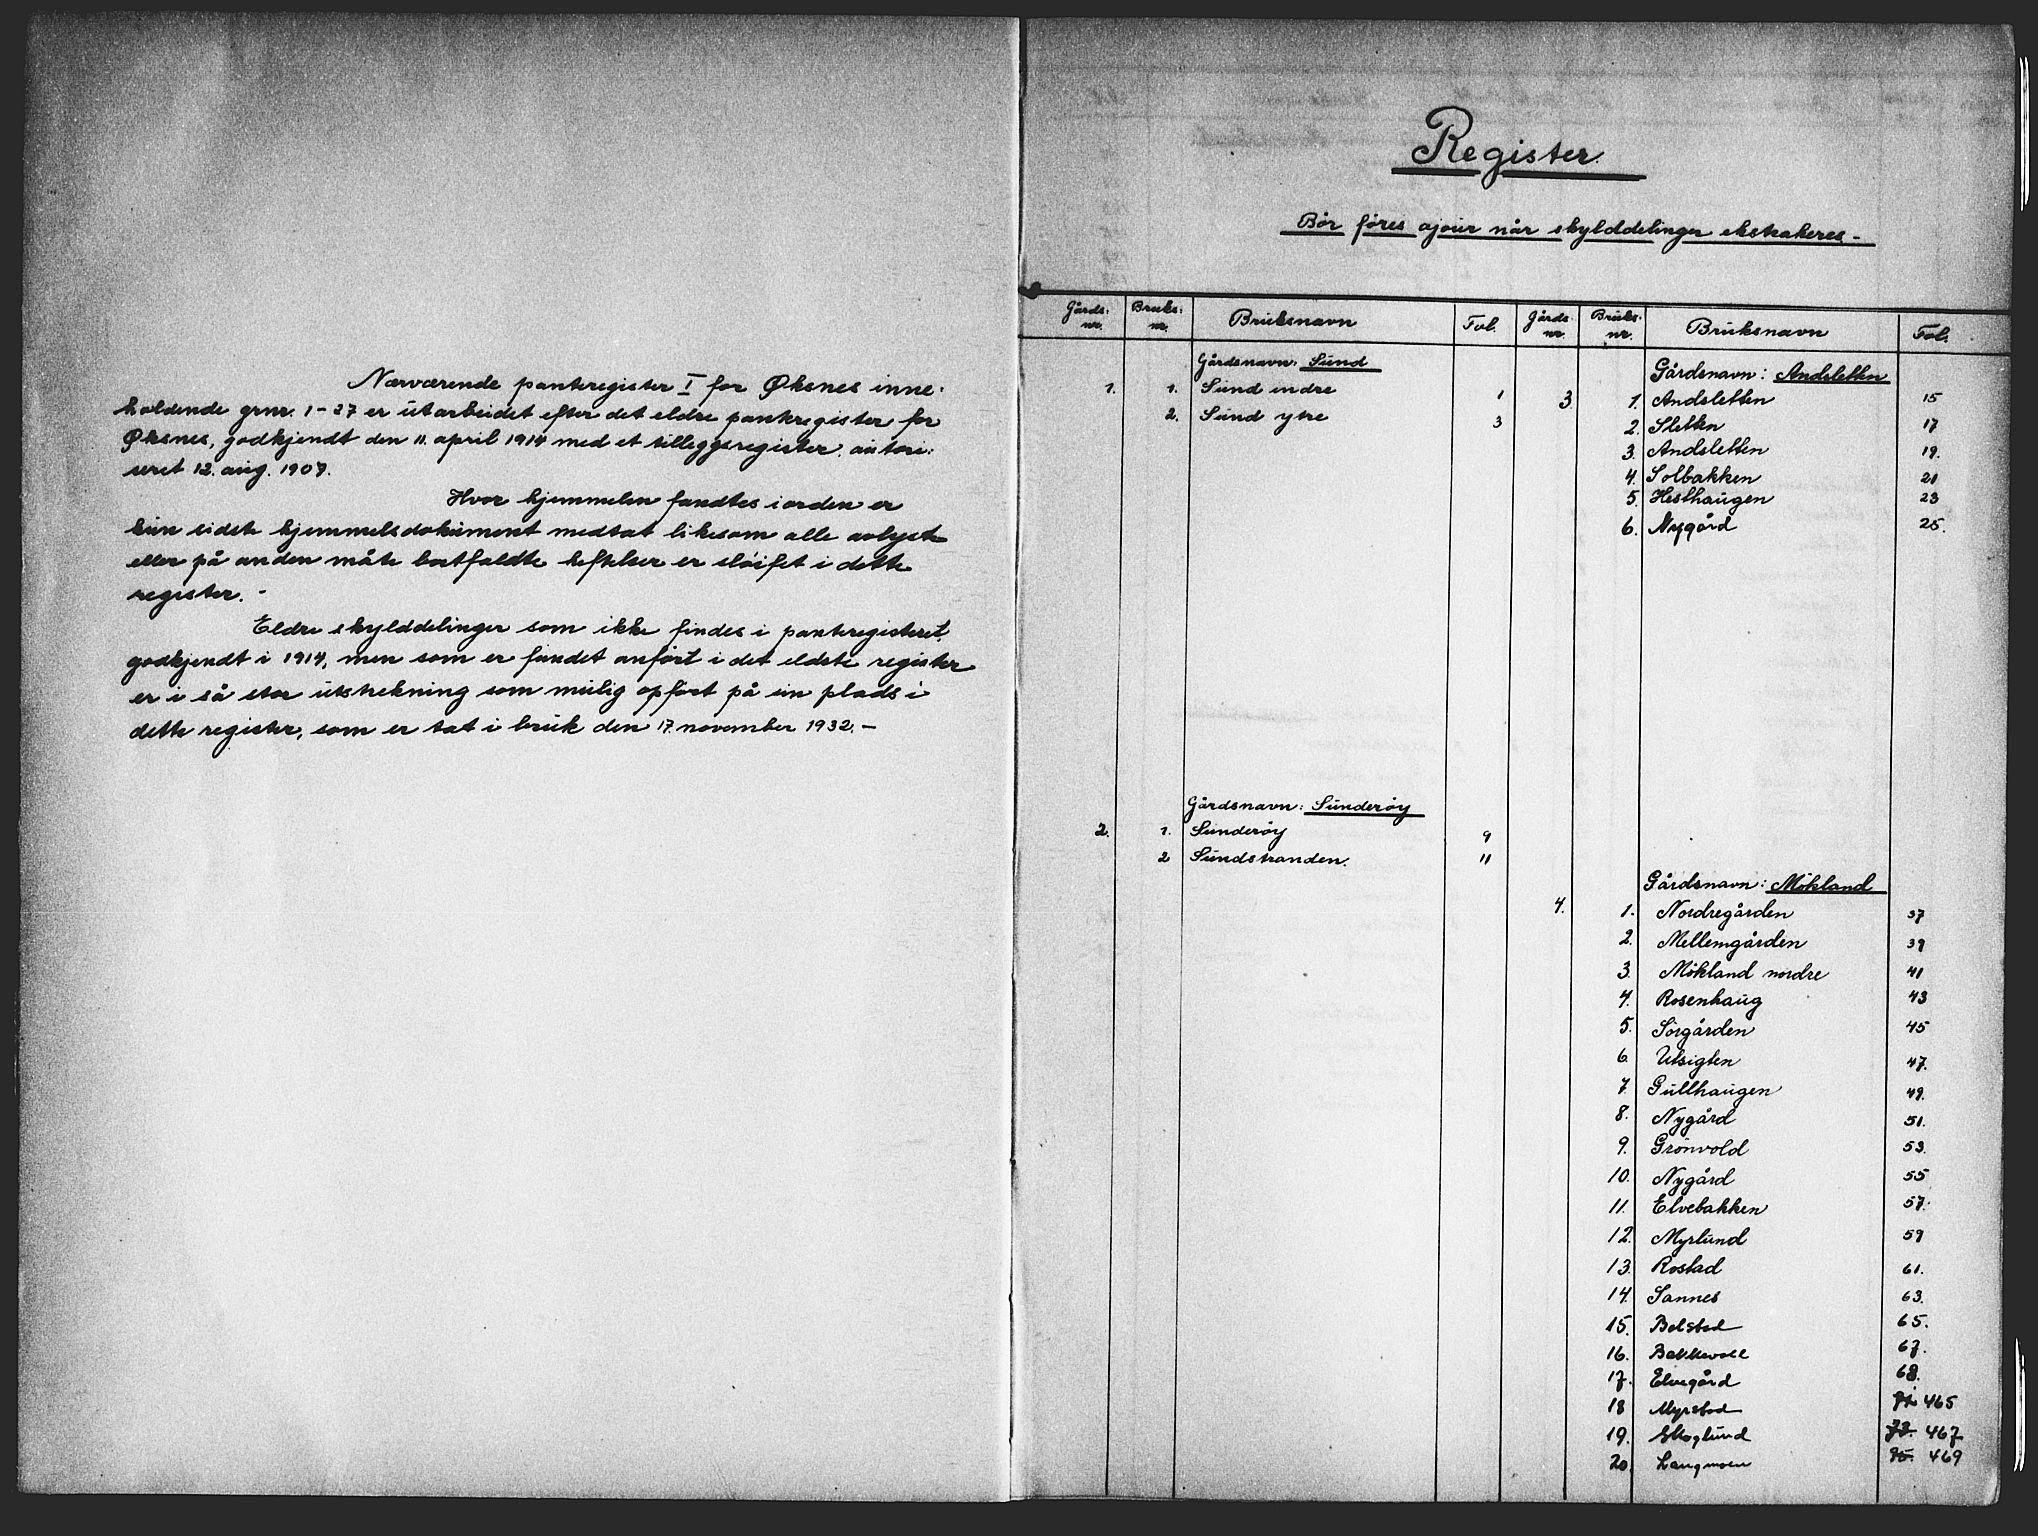 Nærværende panteregister I for Øksnes inne-
holdende grnr. 1-27 er utarbeidet efter det eldre panteregister for
Øksnes, godkjendt den 11. april 1914 med et tilleggsregister autori-
seret 12. aug. 1907.
Hvor hjemmelen fandtes i orden er
kun sidste hjemmelsdokument medtat likesom alle avlyste
eller på anden måte bortfaldte heftelser er sløifet i dette
register. -
Eldre skylddelinger som ikke findes i panteregisteret
godkjendt i 1914, men som er fundet anført i det eldste register
er i så stor utstrekning som mulig opført på sin plads i
dette register, som er tat i bruk den 17. november 1932. -
Register.
Bør føres ajour når skylddelinger ekstraheres -
Gårds- nr. Bruks- nr. Bruksnavn Fol. Gårds- nr. Bruks- nr. Bruksnavn Fol.
Gårdsnavn: Sund
1. 1. Sund indre 1
2. Sund ytre 3
Gårdsnavn: Sunderøy
2. 1. Sunderøy 9
2 Sundstranden. 11
Gårdsnavn: Andsletten
3 1. Andsletten 15
2. Sletten 17
3. Andsletten 19.
4. Solbakken 21
5. Hesthaugen 23
6. Nygård 25.
Gårdsnavn: Mökland
4. 1. Nordregården 37
2. Mellemgården 39
3. Mökland nordre 41
4. Rosenhaug 43
5. Sörgården 45
6. Utsigten 47.
7 Gullhaugen 49.
8. Nygård 51.
9. Grönvold 53.
10. Nygård 55
11. Elvebakken 57.
12. Myrlund 59
13. Rostad 61.
14. Sannes 63.
15. Bolstad 65.
16. Bakkevoll 67.
17. Elvegård 68.
18 Myrstad 71. 465
19. Skoglund 73. 467
20. Langmoen 75. 469